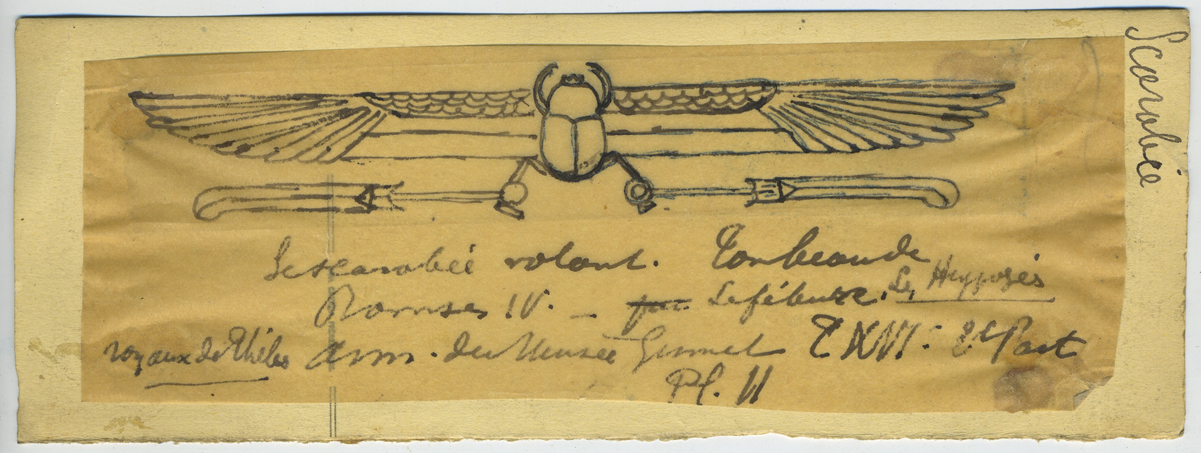 Scarabée
Le scarabée volant. Tombeau de
Ramses IV. — par Lefébure. Les Hypogés
royaux de Thèbes Ann. du Musée Guimet T XVI. 2e Part
Pl. II